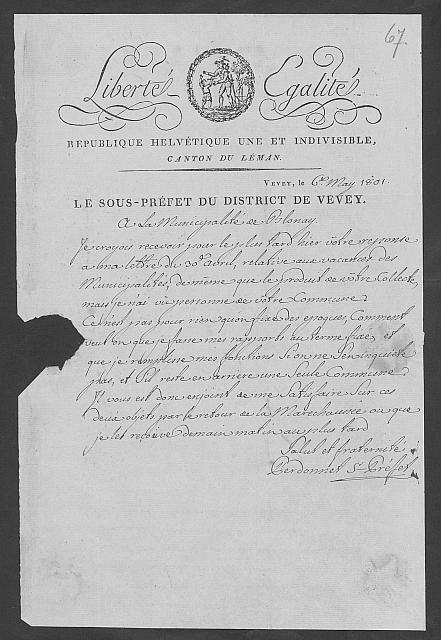 67
Liberté Egalité
REPUBLIQUE HELVÉTIQUE UNE ET INDIVISIBLE,
CANTON DU LÉMAN.
VEVEY, le 6e May 1801
LE SOUS-PRÉFET DU DISTRICT DE VEVEY.
A la Municipalité de Blonay.
Je croyois recevoir pour le plus tard hier votre response
a ma lettre du 30e avril, relative aux vacances des
Municipalités, de même que le produit de votre Collecte,
mais je n'ai vu personne de votre Commune.
Ce n'est pas pour rien qu'on fixe des epoques, Comment
veut on que je fasse mes rapports au terme fixé, et
que je remplisse mes fonctions Si on ne s'en inquiete
pas, et S'il reste en arriere une Seule Commune
Il vous est donc enjoint de me Satisfaire Sur ces
deux objets par le retour de la Marechaussée ou que
je les reçoive demain matin au plus tard
Salut et fraternité
Perdonnet Ss Préfet